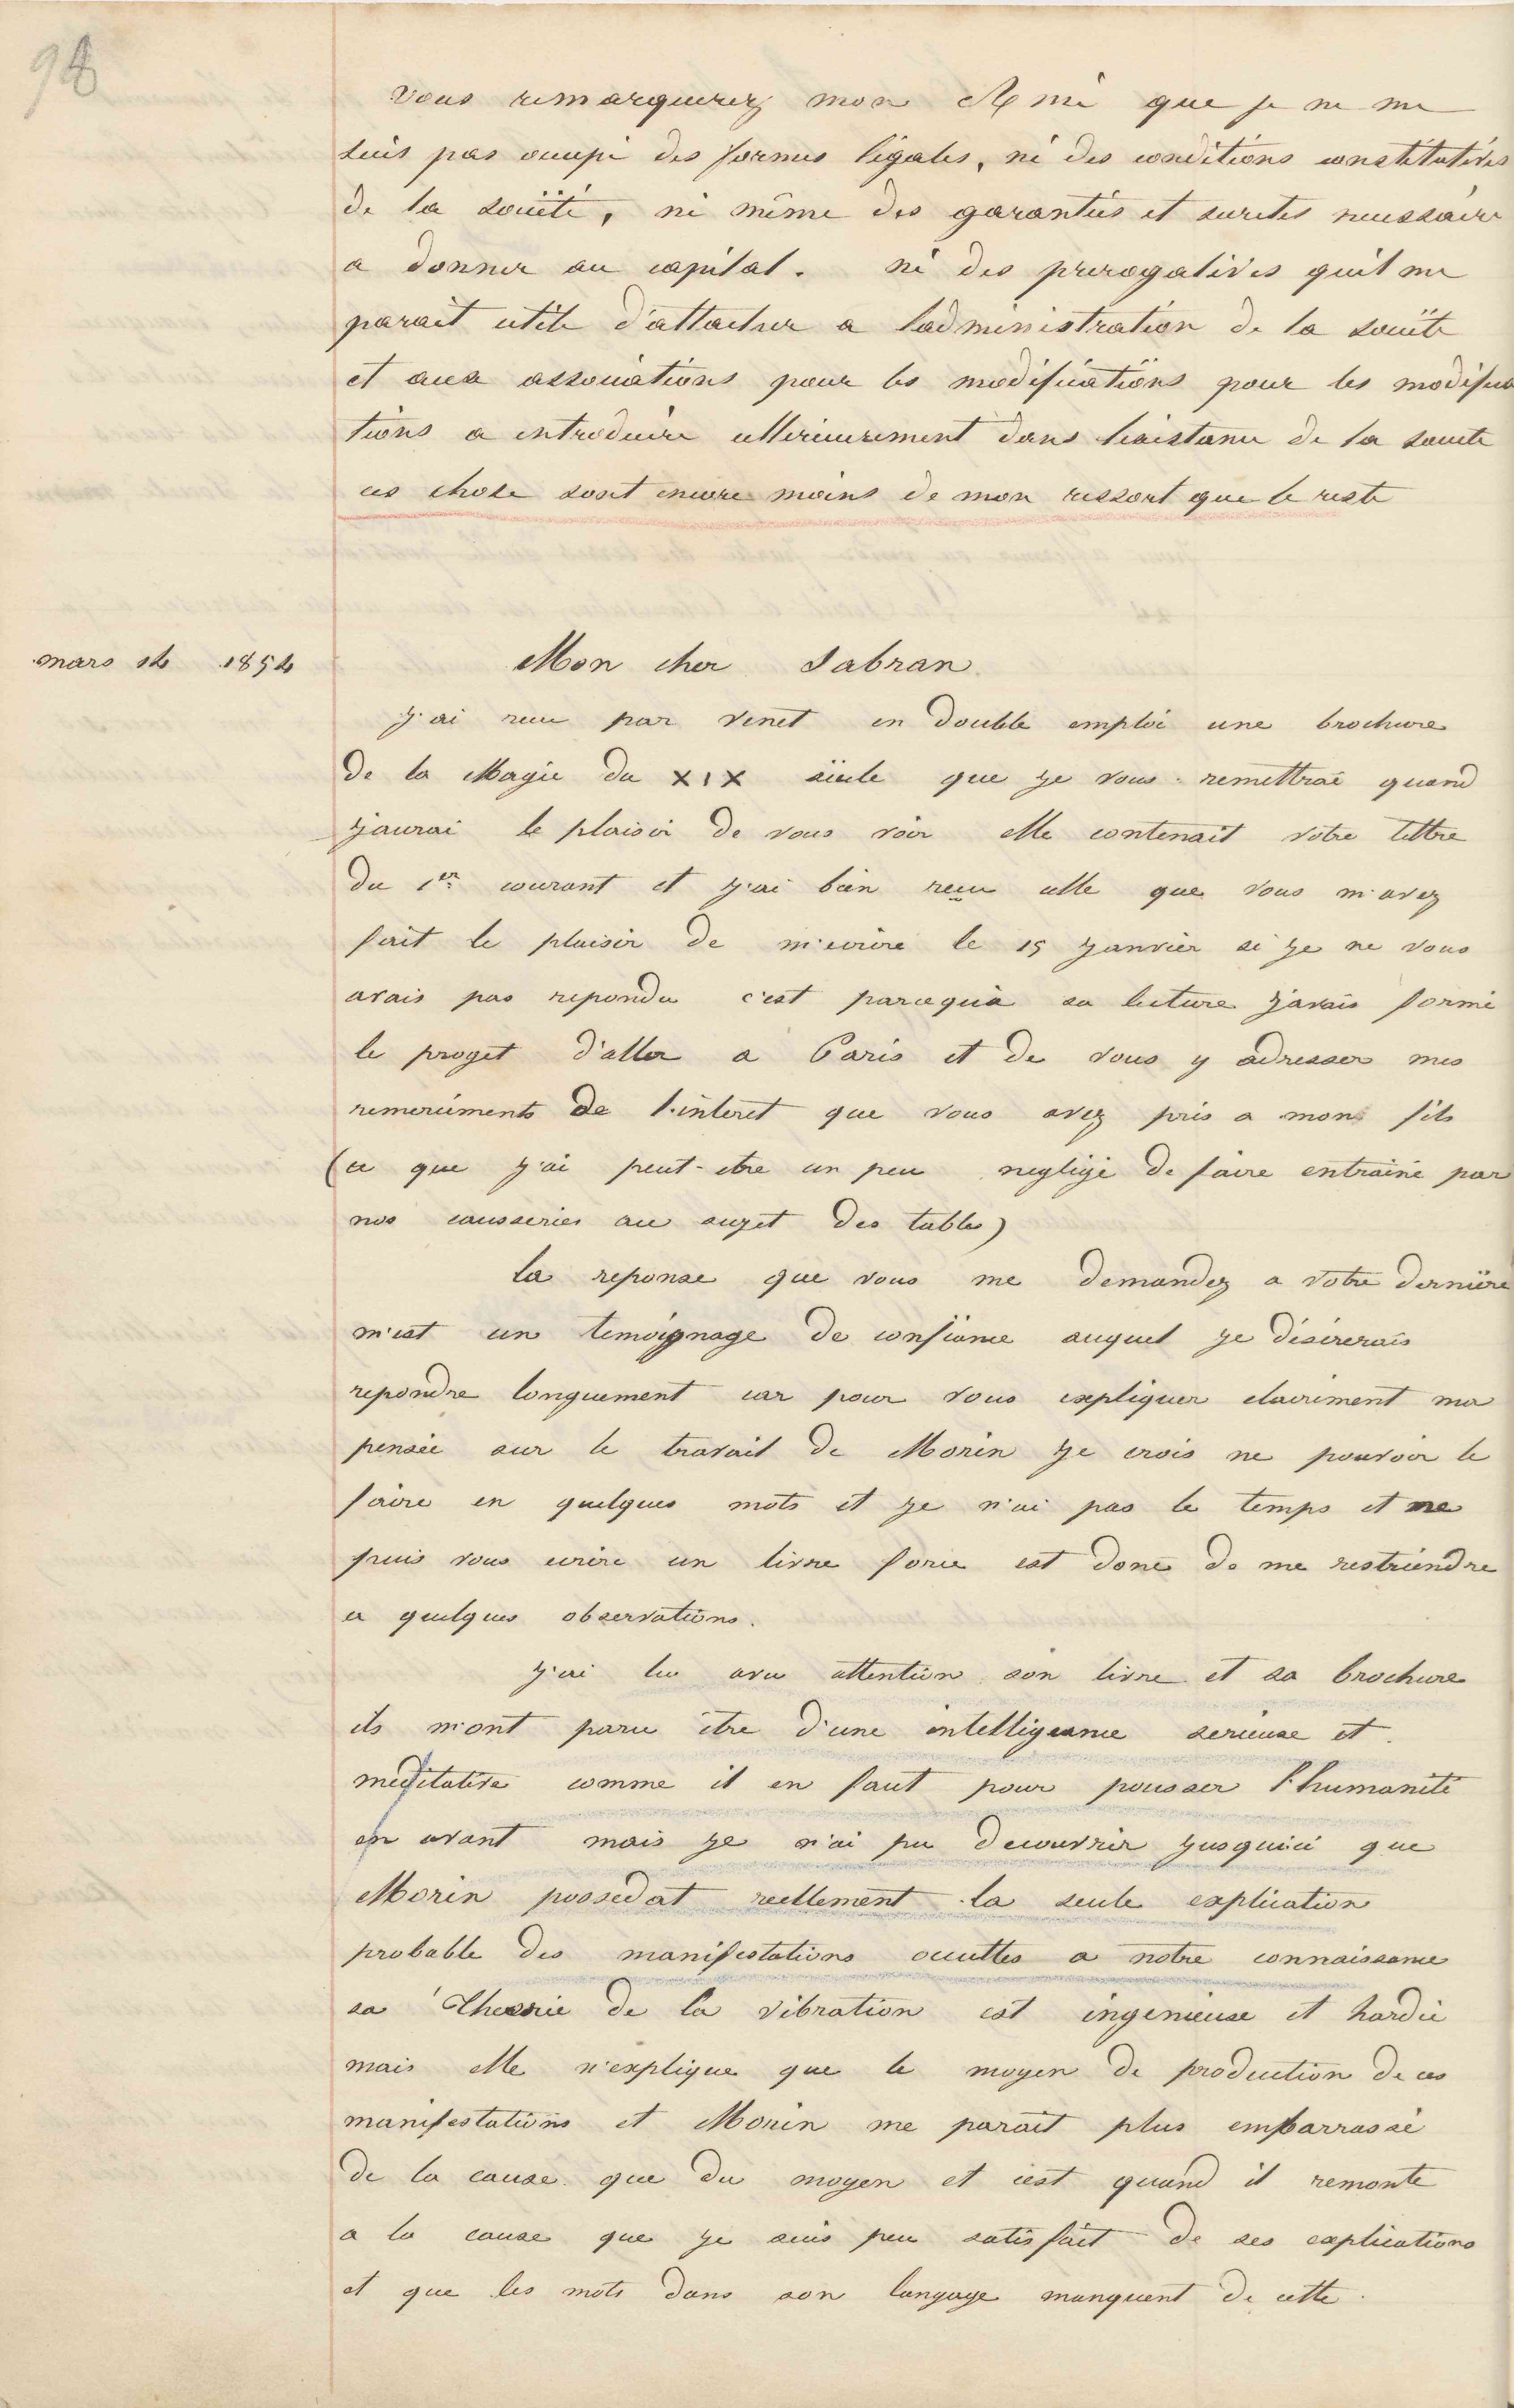 98
vous remarquerez mon Ami que je ne me
suis pas occupé des formes légales, ni des conditions constitutives
de la société, ni même des garanties et suretés necessaire
a donner au capital. ni des prerogatives quil me
parait utile d'attacher a ladministration de la société
et aux associations pour les modifications pour les modifica
tions a introduire ulterieurement dans lexistance de la societe
ces chose sont encore moins de mon ressort que le reste
mars 14 1854
Mon cher Sabran
J'ai recu par Venet en double emploi une brochure
de la Magie du XIX siècle que je vous remettrai quand
j'aurai le plaisir de vous voir elle contenait votre lettre
du 1er courant et j'ai bien reçu celle que vous m'avez
fait le plaisir de m'ecrire le 15 janvier si je ne vous
avais pas repondu c'est parcequ'a sa lecture j'avais formé
le proget d'aller a Paris et de vous y adresser mes
remerciments de l'interet que vous avez pris a mon fils
(ce que j'ai peut-etre un peu negligé de faire entrainé par
nos causseries au suget des tables)
la reponse que vous me demandez a votre dernière
m'est un temoignage de confiance auquel je désirerais
repondre longuement car pour vous expliquer clairement ma
pensée sur le travail de Morin je crois ne pouvoir le
faire en quelques mots et je n'ai pas le temps et ne
puis vous ecrire un livre force est donc de me restriendre
a quelques observations.
j'ai lu avec attention son livre et sa brochure
ils m'ont paru être d'une intelligeance serieuse et
meditative comme il en faut pour pousser l'humanité
en avant mais je n'ai pu decouvrir jusqu'ici que
Morin possedat reellement la seule explication
probable des manifestations occultes a notre connaissance
sa Theorie de la vibration est ingenieuse et hardie
mais elle n'explique que le moyen de production de ces
manifestations et Morin me parait plus embarrassé
de la cause que du moyen et c'est quand il remonte
a la cause que je suis peu satisfait de ses explications
et que les mots dans son langage manquent de cette